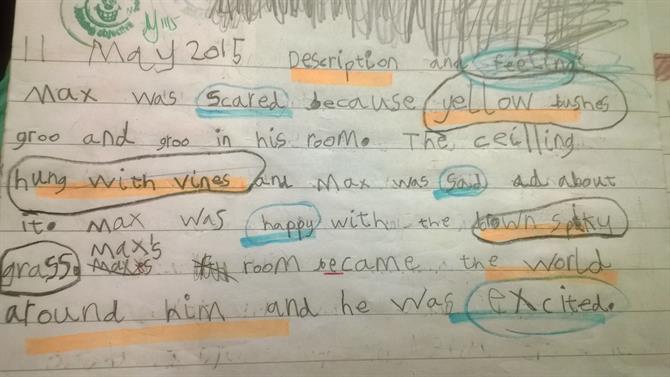 11 May 2015 Description and feelings
Max was scared because yellow bushes
groo and groo in his room. The ceilling
hung with vines and Max was sad ad about
it. Max was happy with the brown spiky
grass. Max's
room became the world
around him and he was excited.